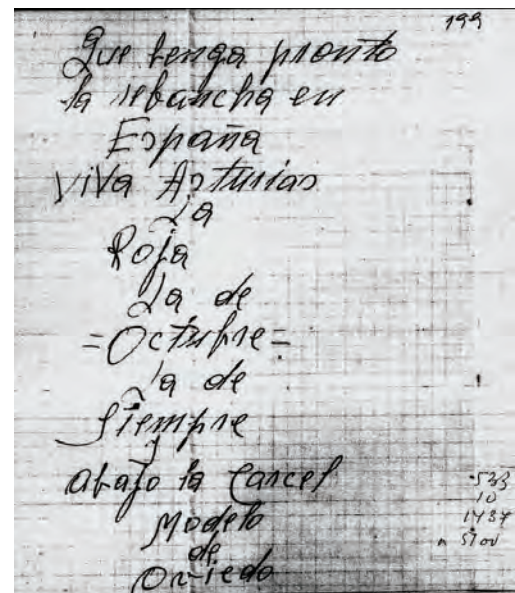 199
Que tenga pronto
la rebancha en
España
Viva Asturias
La
Roja
La de
=Octubre=
la de
Siempre
y
abajo la Carcel
Modelo
de
Oviedo
533
10
1437